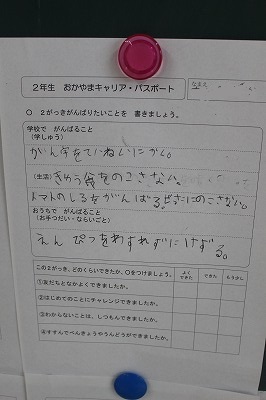 2年生 おかやまキャリア・パスポート
なまえ
○ 2がっきがんばりたいことを 書きましょう。
学校で がんばること
(学しゅう)
かん字をていねいにかく。
(生活) きゅう食をのこさない。
トマトのしるをがんばる。ぜったいにのこさない。
おうちで がんばること
(お手つだい・ならいごと)
えんぴつをわすれずにけずる。
この2がっき、どのくらいできたか、○をつけましょう。 よくできた できた もう少し
①友だちとなかよくできましたか。
②はじめてのことにチャレンジできましたか。
③わからないことは、しつもんできましたか。
④すすんでべんきょうやうんどうができましたか。